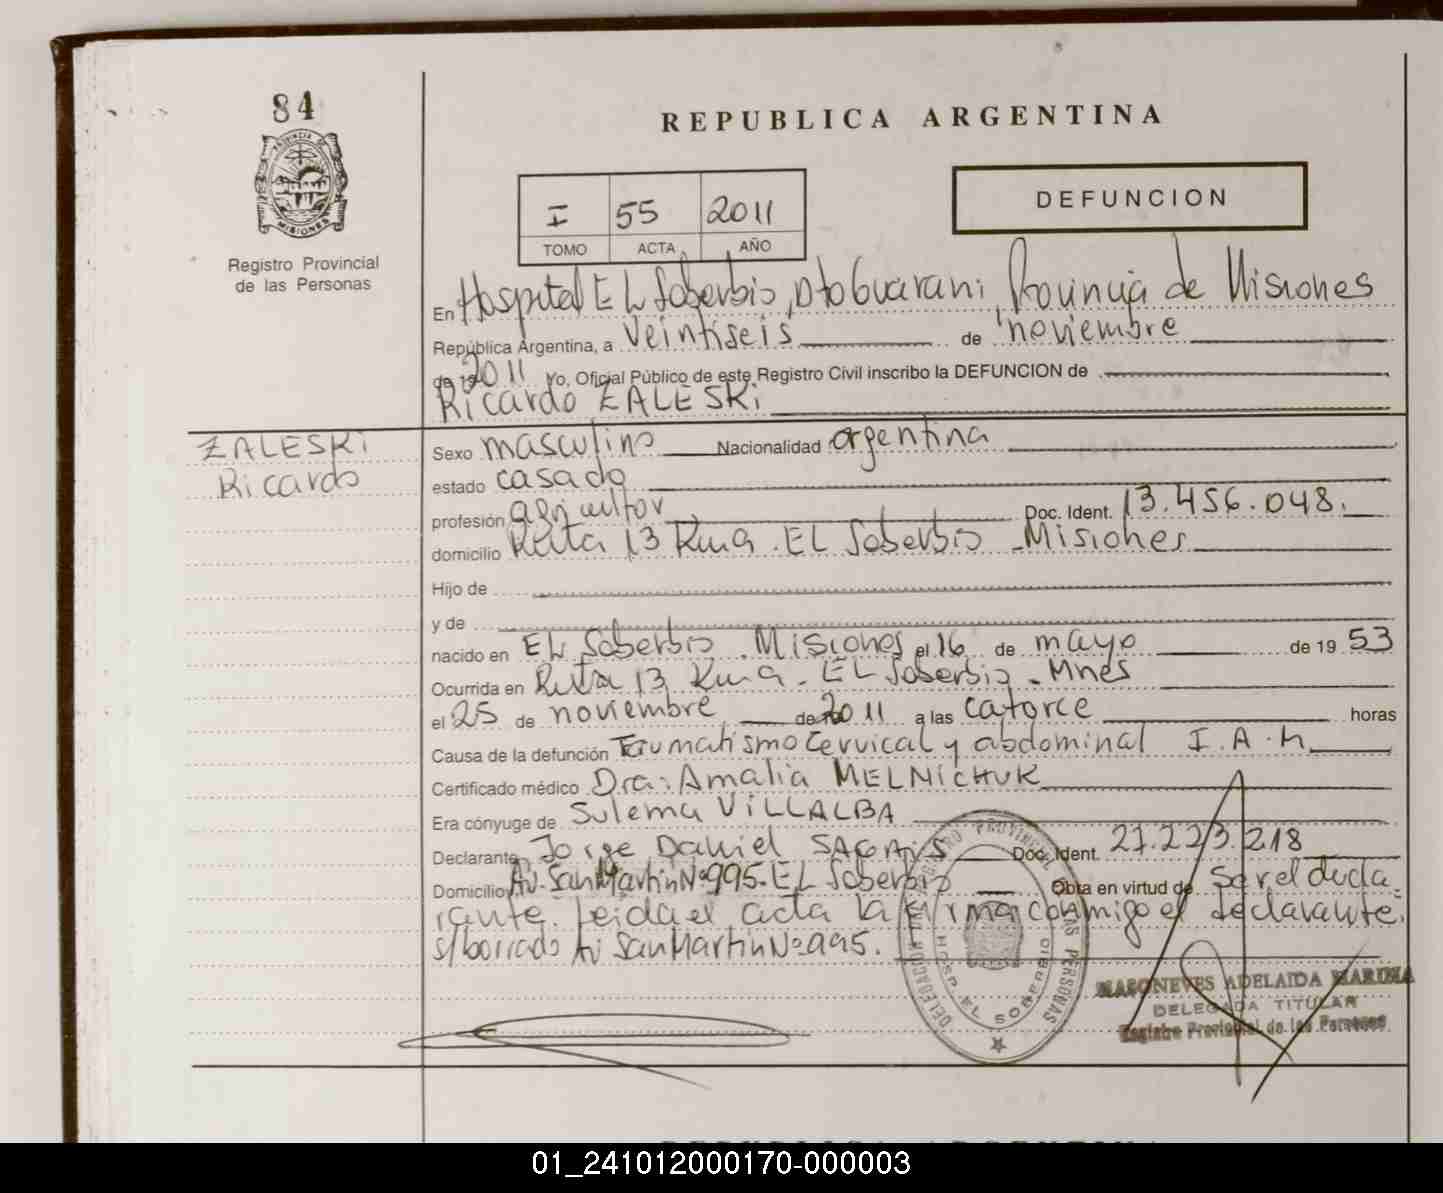 84
REPUBLICA ARGENTINA
PROVINCIA DE
MISIONES
Registro Provincial
de las Personas
I 55 2011
TOMO ACTA AÑO
DEFUNCION
En Hospital EL Soberbio, Dto Guarani, Provincia de Misiones
República Argentina, a Veintiseis de noviembre
de 2011 Yo, Oficial Público de este Registro Civil inscribo la DEFUNCION de
Ricardo ZALESKi
ZALESKi
Ricardo
Sexo masculino Nacionalidad argentina
estado casado
profesión agricultor Doc. Ident. 13.456.048.
domicilio Ruta 13 EL Soberbio - Misiones
Hijo de
y de
nacido en EL Soberbio. Misiones el 16 de mayo de 19 53
Ocurrida en Ruta 13 EL Soberbio - Mnes
el 25 de noviembre de 2011 a las catorce horas
Causa de la defunción Traumatismo Cervical y abdominal I.A.h
Certificado médico Dra: Amalia MELNiCHUK
Era cónyuge de Sulema ViLLALBA
Declarante Jorge Daniel Doc. Ident. 21.223.218
Domicilio Av. San Martin Nº 995. EL Soberbio Obra en virtud de Ser el decla
rante. Leida el acta la firma conmigo el declarante.
s/borrado Av San Martin Nº 995.
HOSP. EL SOBERBIO
MASONEVES ADELAIDA MARINA
DELEGADA TITULAR
Registro Provincial de las Personas
01_241012000170-000003